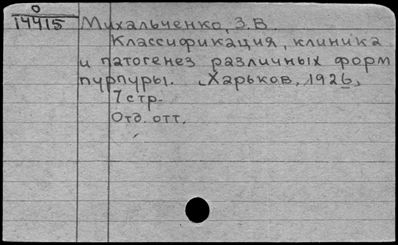 О
14415
Михальченко, З.В.
Классификация, клиника
и патогенез различных форм
пурпуры. Харьков, 1926,
7 стр.
Отд. отт.